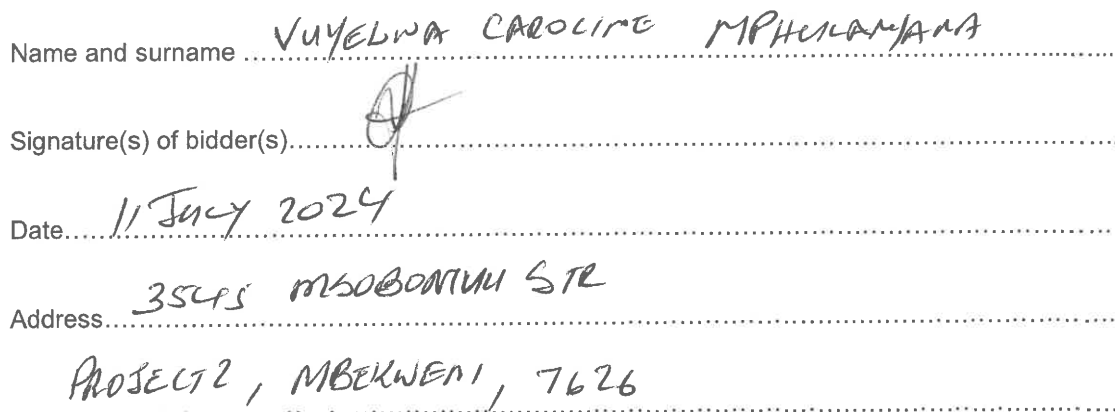 Name and surname ... VUYELWA CAROLINE MPHUKANYANA
Signature(s) of bidder(s)...
Date... 11 July 2024
Address... 3545 STR
PROJECT 2, MBEKWENI, 7626